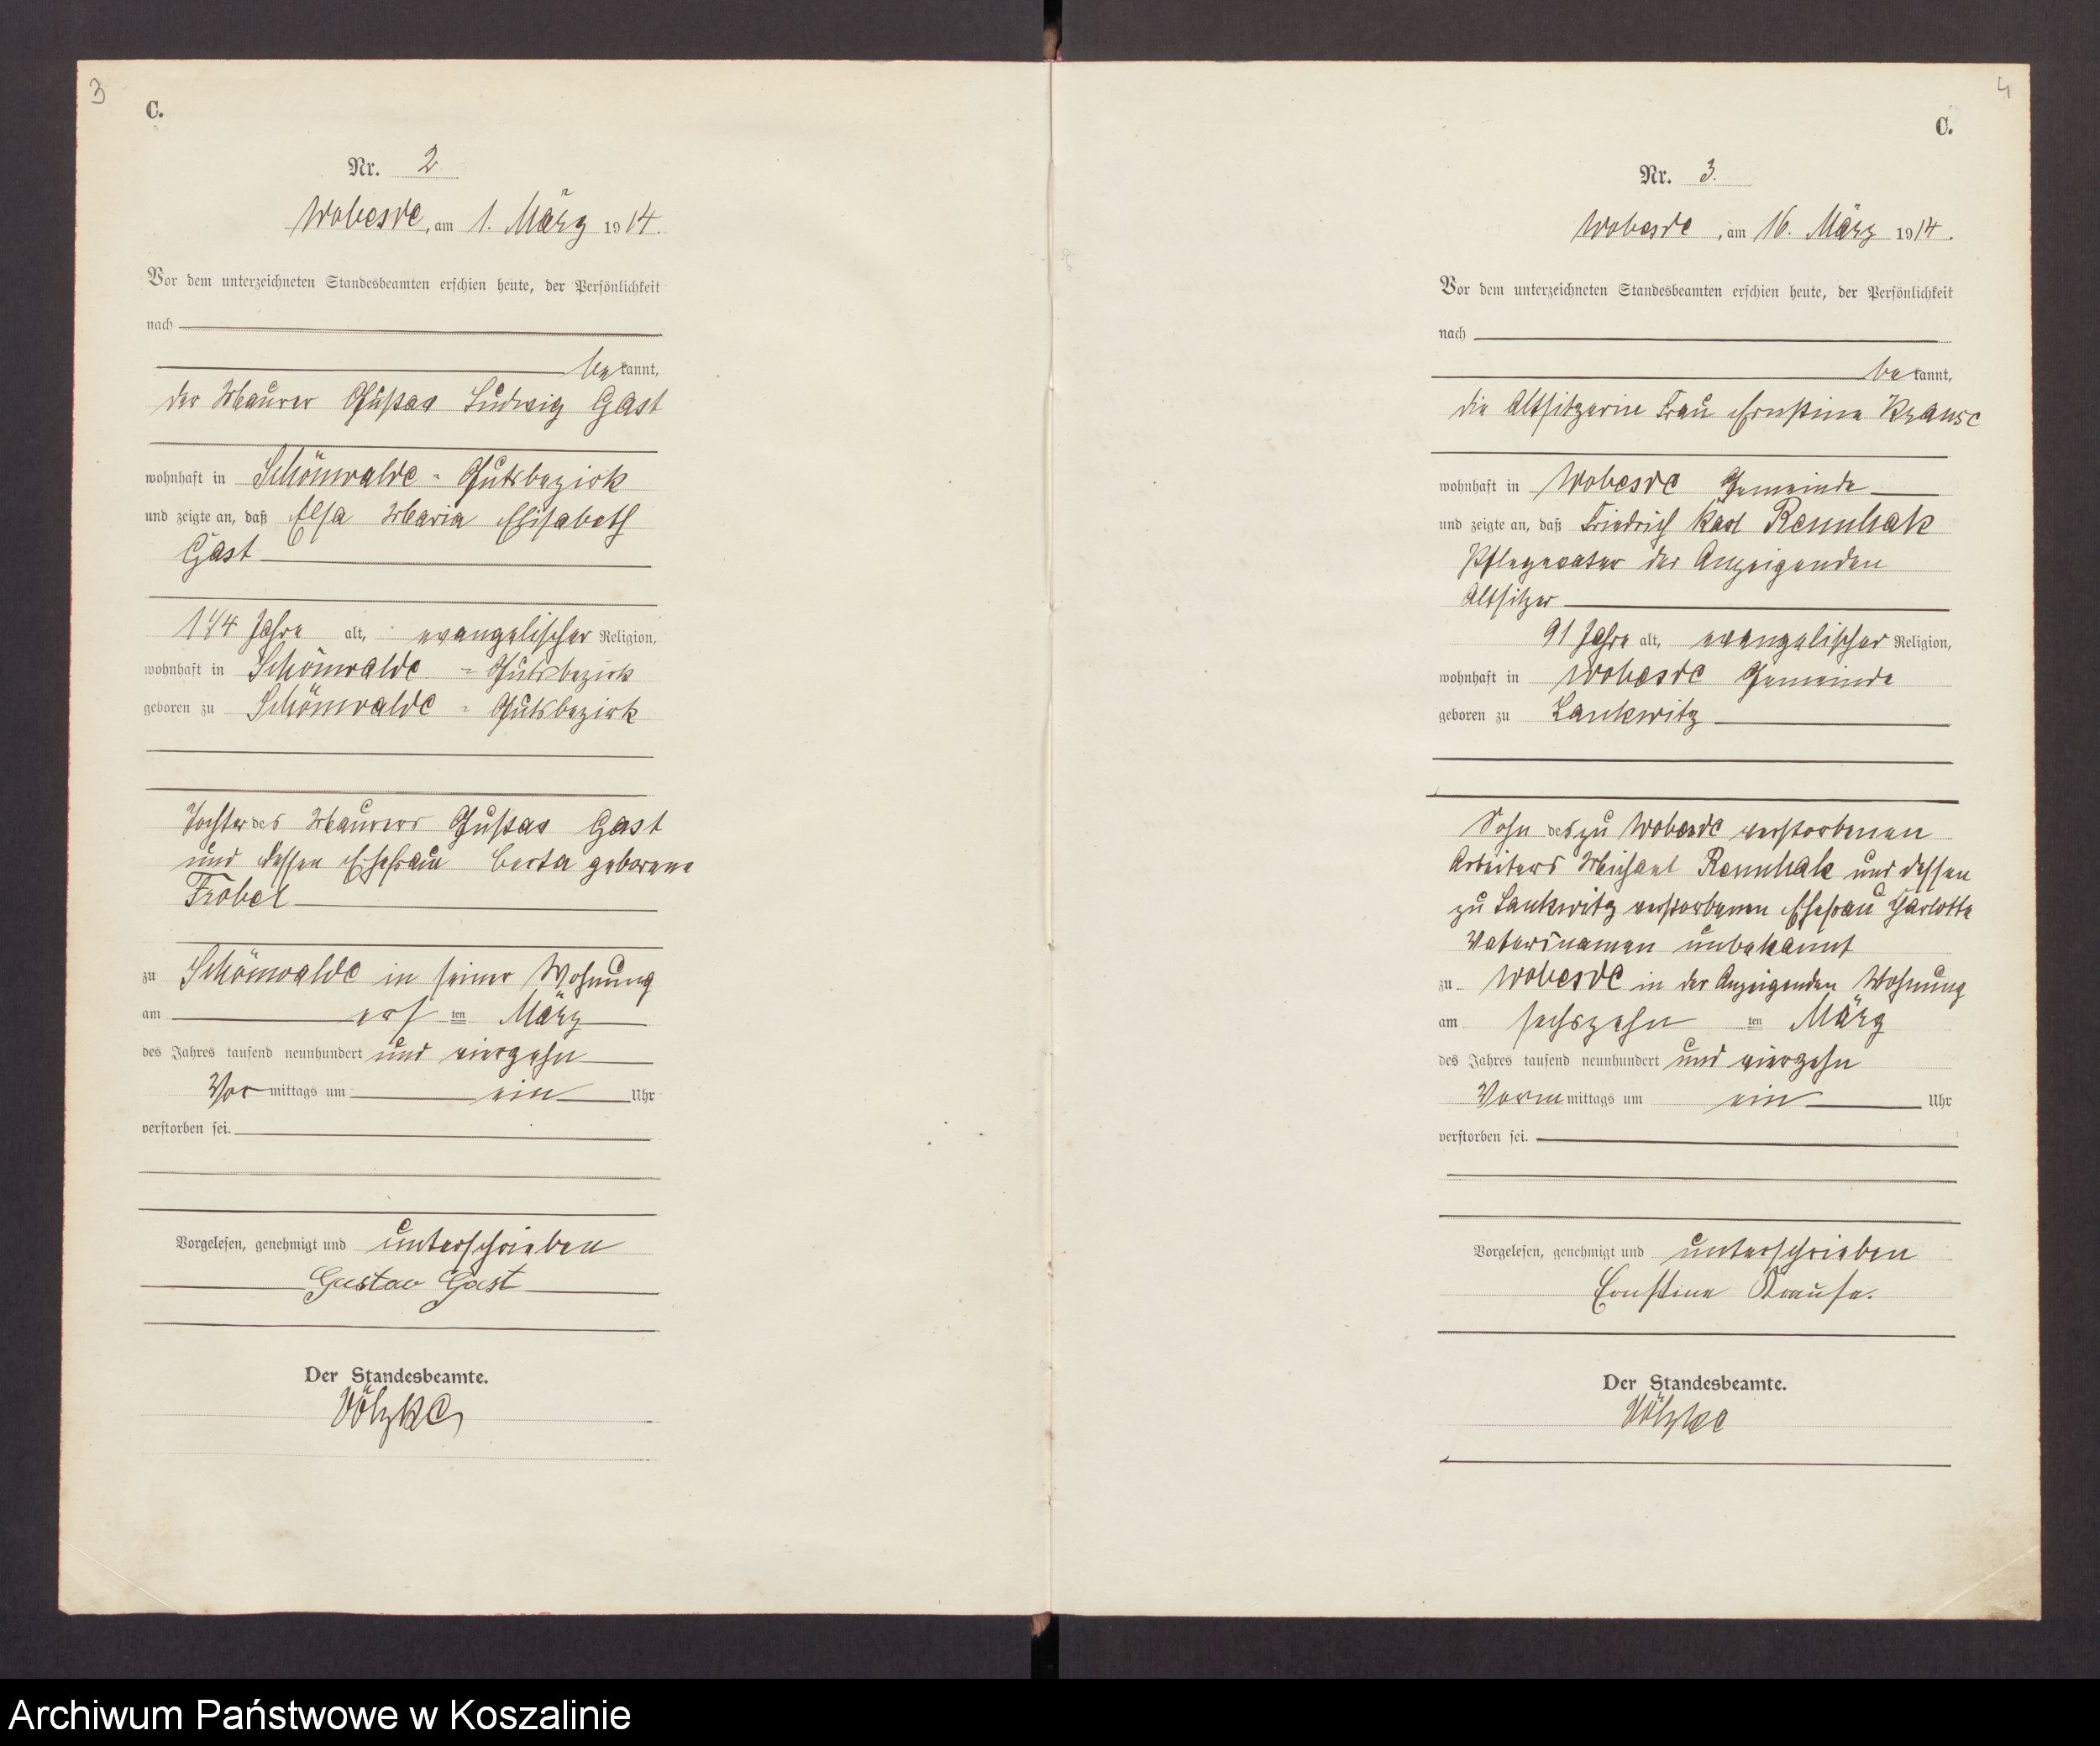 3
C.
Nr. 2
Wobesde, am 1. März 1914.
Vor dem unterzeichneten Standesbeamten erschien heute, der Persönlichkeit
nach
bekannt,
der Maurer Gustav Ludwig Gast
wohnhaft in Schönwalde - Gutsbezirk
und zeigte an, daß Elsa Maria Elisabeth
Gast
1 1/4 Jahre alt, evangelischer Religion,
wohnhaft in Schönwalde - Gutsbezirk
geboren zu Schönwalde - Gutsbezirk
Tochter des Maurers Gustav Gast
und dessen Ehefrau Berta geborene
Fröbel
zu Schönwalde in seiner Wohnung
am ersten März
des Jahres tausend neunhundert und vierzehn
Vormittags um ein Uhr
verstorben sei.
Vorgelesen, genehmigt und unterschrieben
Gustav Gast
Der Standesbeamte.
Völzke
4
C.
Nr. 3.
Wobesde, am 16. März 1914.
Vor dem unterzeichneten Standesbeamten erschien heute, der Persönlichkeit
nach
bekannt,
die Altsitzerin Frau Ernstine Krause
wohnhaft in Wobesde Gemeinde
und zeigte an, daß Friedrich Karl Rennhak
Pflegevater der Anzeigenden
Altsitzer
91 Jahre alt, evangelischer Religion,
wohnhaft in Wobesde Gemeinde
geboren zu Lankwitz
Sohn des zu Wobesde verstorbenen
Arbeiters Michael Rennhak und dessen
zu Lankwitz verstorbenen Ehefrau Charlotte
Vatersnamen unbekannt
zu Wobesde in der Anzeigenden Wohnung
am sechszehnten März
des Jahres tausend neunhundert und vierzehn
Vormmittags um ein Uhr
verstorben sei.
Vorgelesen, genehmigt und unterschrieben
Ernstine Krause.
Der Standesbeamte.
Völzke
Archiwum Państwowe w Koszalinie